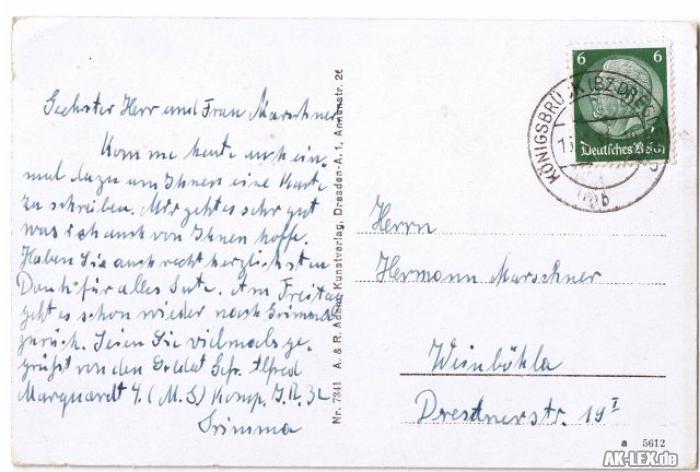 Geehrter Herr und Frau Marschner
Komme heute auch ein-
mal dazu um Ihnen eine Karte
zu schreiben. Mir geht es sehr gut
was ich auch von Ihnen hoffe.
Haben Sie auch recht herzlichsten
Dank für alles Gute. Am Freitag
geht es schon wieder nach Grimma
zurück. Seien Sie vielmals ge-
grüßt von den Soldat Gefr. Alfred
Marquardt 4. (M.G) Komp. J.R. 32
Grimma
Nr. 7341 A. & R. Adam, Kunstverlag, Dresden-A. 1, Annenstr. 26
6 6
Deutsches Reich
KÖNIGSBRÜCK (BZ DRESDEN)
b
Herrn
Hermann Marschner
Weinböhla
Dresdnerstr. 19 I
a 5612
AK-LEX.de